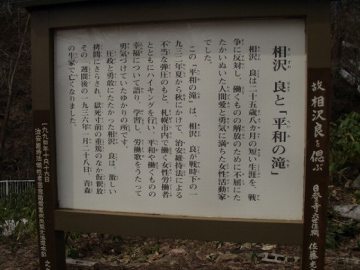 相沢 良と「平和の滝」
相沢 良は二十五歳八カ月の短い生涯を、戦
争に反対し、働くものの解放のために不屈にた
たかいぬいた人間愛と勇気に満ちた女性活動家
でした。
この「平和の滝」は、相沢 良が戦時下の一
九三二年夏から秋にかけて、治安維持法による
不当な弾圧のもと、札幌市内で働く女性労働者
とともにハイキングを行い、平和や働くものの
幸福について語り、学習し、労働歌をうたって
勇気づけていたゆかりの所です。
圧政と勇敢にたたかった相沢 良は、激しい
拷問にさらされ、獄死寸前の重篤のなか仮釈放
その一週間後の一九三六年一月二十八日、青森
の生家で亡くなりました。
故 相沢良を偲ぶ
佐藤
一九九四年十月十六日
治安維持法犠牲者